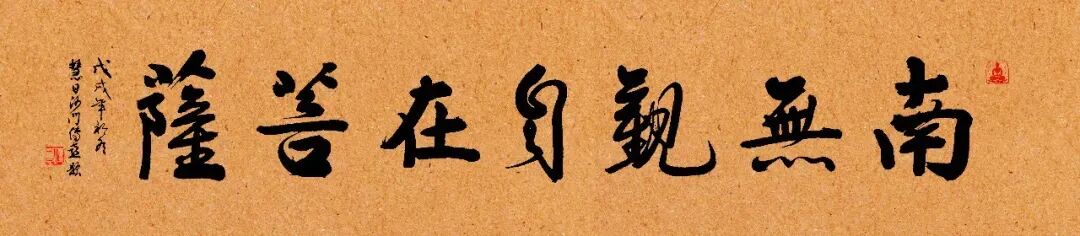 南無觀自在菩薩
戊戌年
慧日沙門